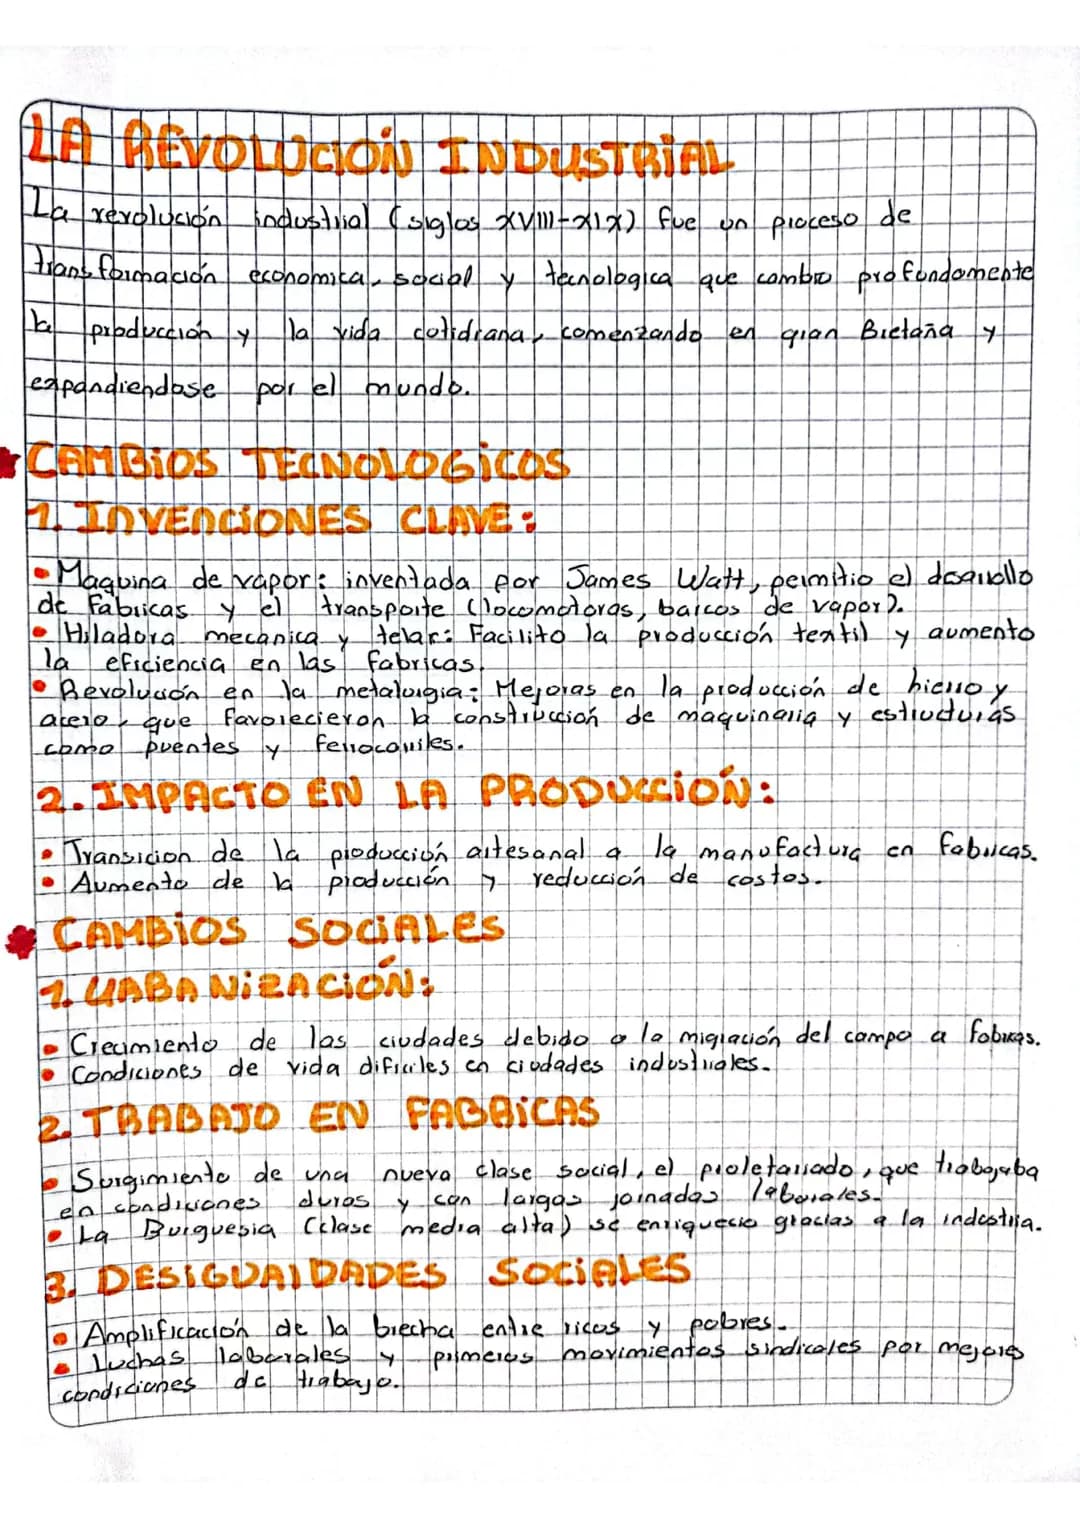 LA REVOLUCIÓN INDUSTRIAL
La revolución industrial (siglos XVIII-XIX) fue un proceso de
transformación economica, social y tecnologica que cambio profundamente
la producción y la vida cotidiana, comenzando en gran Bretaña y
expandiendose por el mundo.
CAMBIOS TECNOLOGICOS
1. INVENCIONES CLAVE:
• Maquina de vapor: inventada por James Watt, permitio el desarrollo
de fabricas y el transporte (locomotoras, barcos de vapor).
• Hiladora mecanica y telar: Facilito la producción textil y aumento
la eficiencia en las fabricas.
• Revolución en la metalurgia: Mejoras en la producción de hierro y
acero, que favorecieron la construcción de maquinaria y estructuras
como puentes y ferrocarriles.
2. IMPACTO EN LA PRODUCCIÓN:
• Transicion de la producción artesanal a la manufactura en fabricas.
• Aumento de la producción y reducción de costos.
CAMBIOS SOCIALES
1. URBANIZACIÓN:
• Crecimiento de las ciudades debido a la migración del campo a fabricas.
• Condiciones de vida dificiles en ciudades industriales.
2. TRABAJO EN FABRICAS
• Surgimiento de una nueva clase social, el proletariado, que trabajaba
en condiciones duras y con largas jornadas laborales.
• La Burguesia (clase media alta) se enriquecio gracias a la industria.
3. DESIGUALDADES SOCIALES
• Amplificación de la brecha entre ricos y pobres.
• Luchas laborales y primeros movimientos sindicales por mejores
condiciones de trabajo.